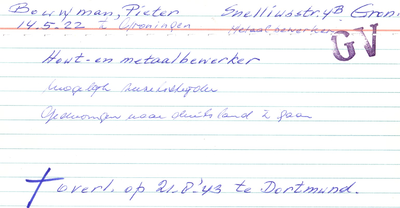 Bouwman, Pieter Snelliusstr. 4B Gron.
14.5.'22 te Groningen Metaalbewerker
GV
Hout- en metaalbewerker
Mogelijk
Gedwongen naar duitsland te gaan
† overl. op 21-8-'43 te Dortmund.